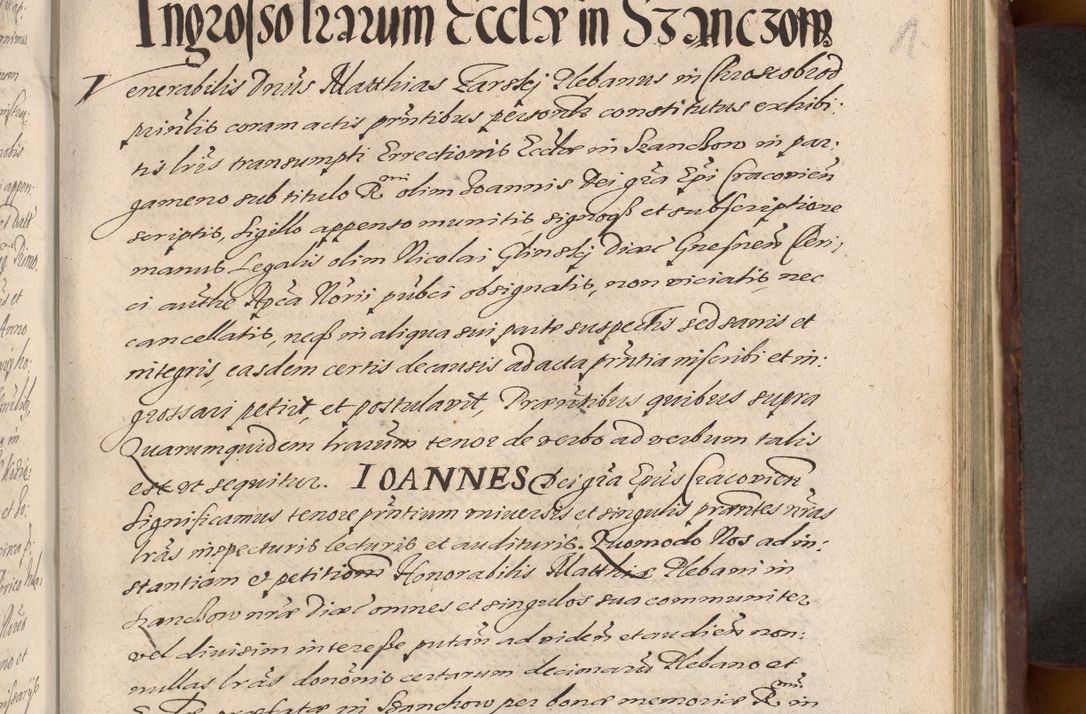 Ingrosso lrarum Ecclæ in Szanczow
Venerabilis Dnus Matthias Zarskj Plebanus in Chrostobrod
prinlis coram actis prñtibus personlr constitutus exhibi:
tis lris transumpti Errectionis Ecclæ in Szanchow in par:
gameno sub titulo Rmi olim Joannis Dei gra Epi Cracovien
scriptis, Sigillo appenso munitis, signoqß et subscriptione
manus Legalis olim Nicolai Glinskj Diæc Gnesnen Cleri:
ci authe Apca Norii pubci obsignatis, non viciatis, nec
cancellatis, neqß in aliqua sui parte suspectis sed sanis et
integris, easdem certis de causis ad acta prñtia inscribi et in:
grossari petiit, et postulavit, Præntibus quibus supra
Quarumquidem lrarum tenor de verbo ad verbum talis
est ut sequitur. IOANNES Dei gra Epus Cracovien
Significamus tenore prñtium universis et singulis præntes nras
lras inspecturis lecturis et audituris. Quomodo Nos ad in:
stantiam et petitionem Honorabilis Matthiæ Plebani in
Szanchow nræ Diæc omnes et singulos sua communiter
vel divisim interesse putan ad viden et audien non:
nullas lras donönis certarum decimaru Plebano et
præfatæ in Szanchow per bonæ memoriæ Rmū in